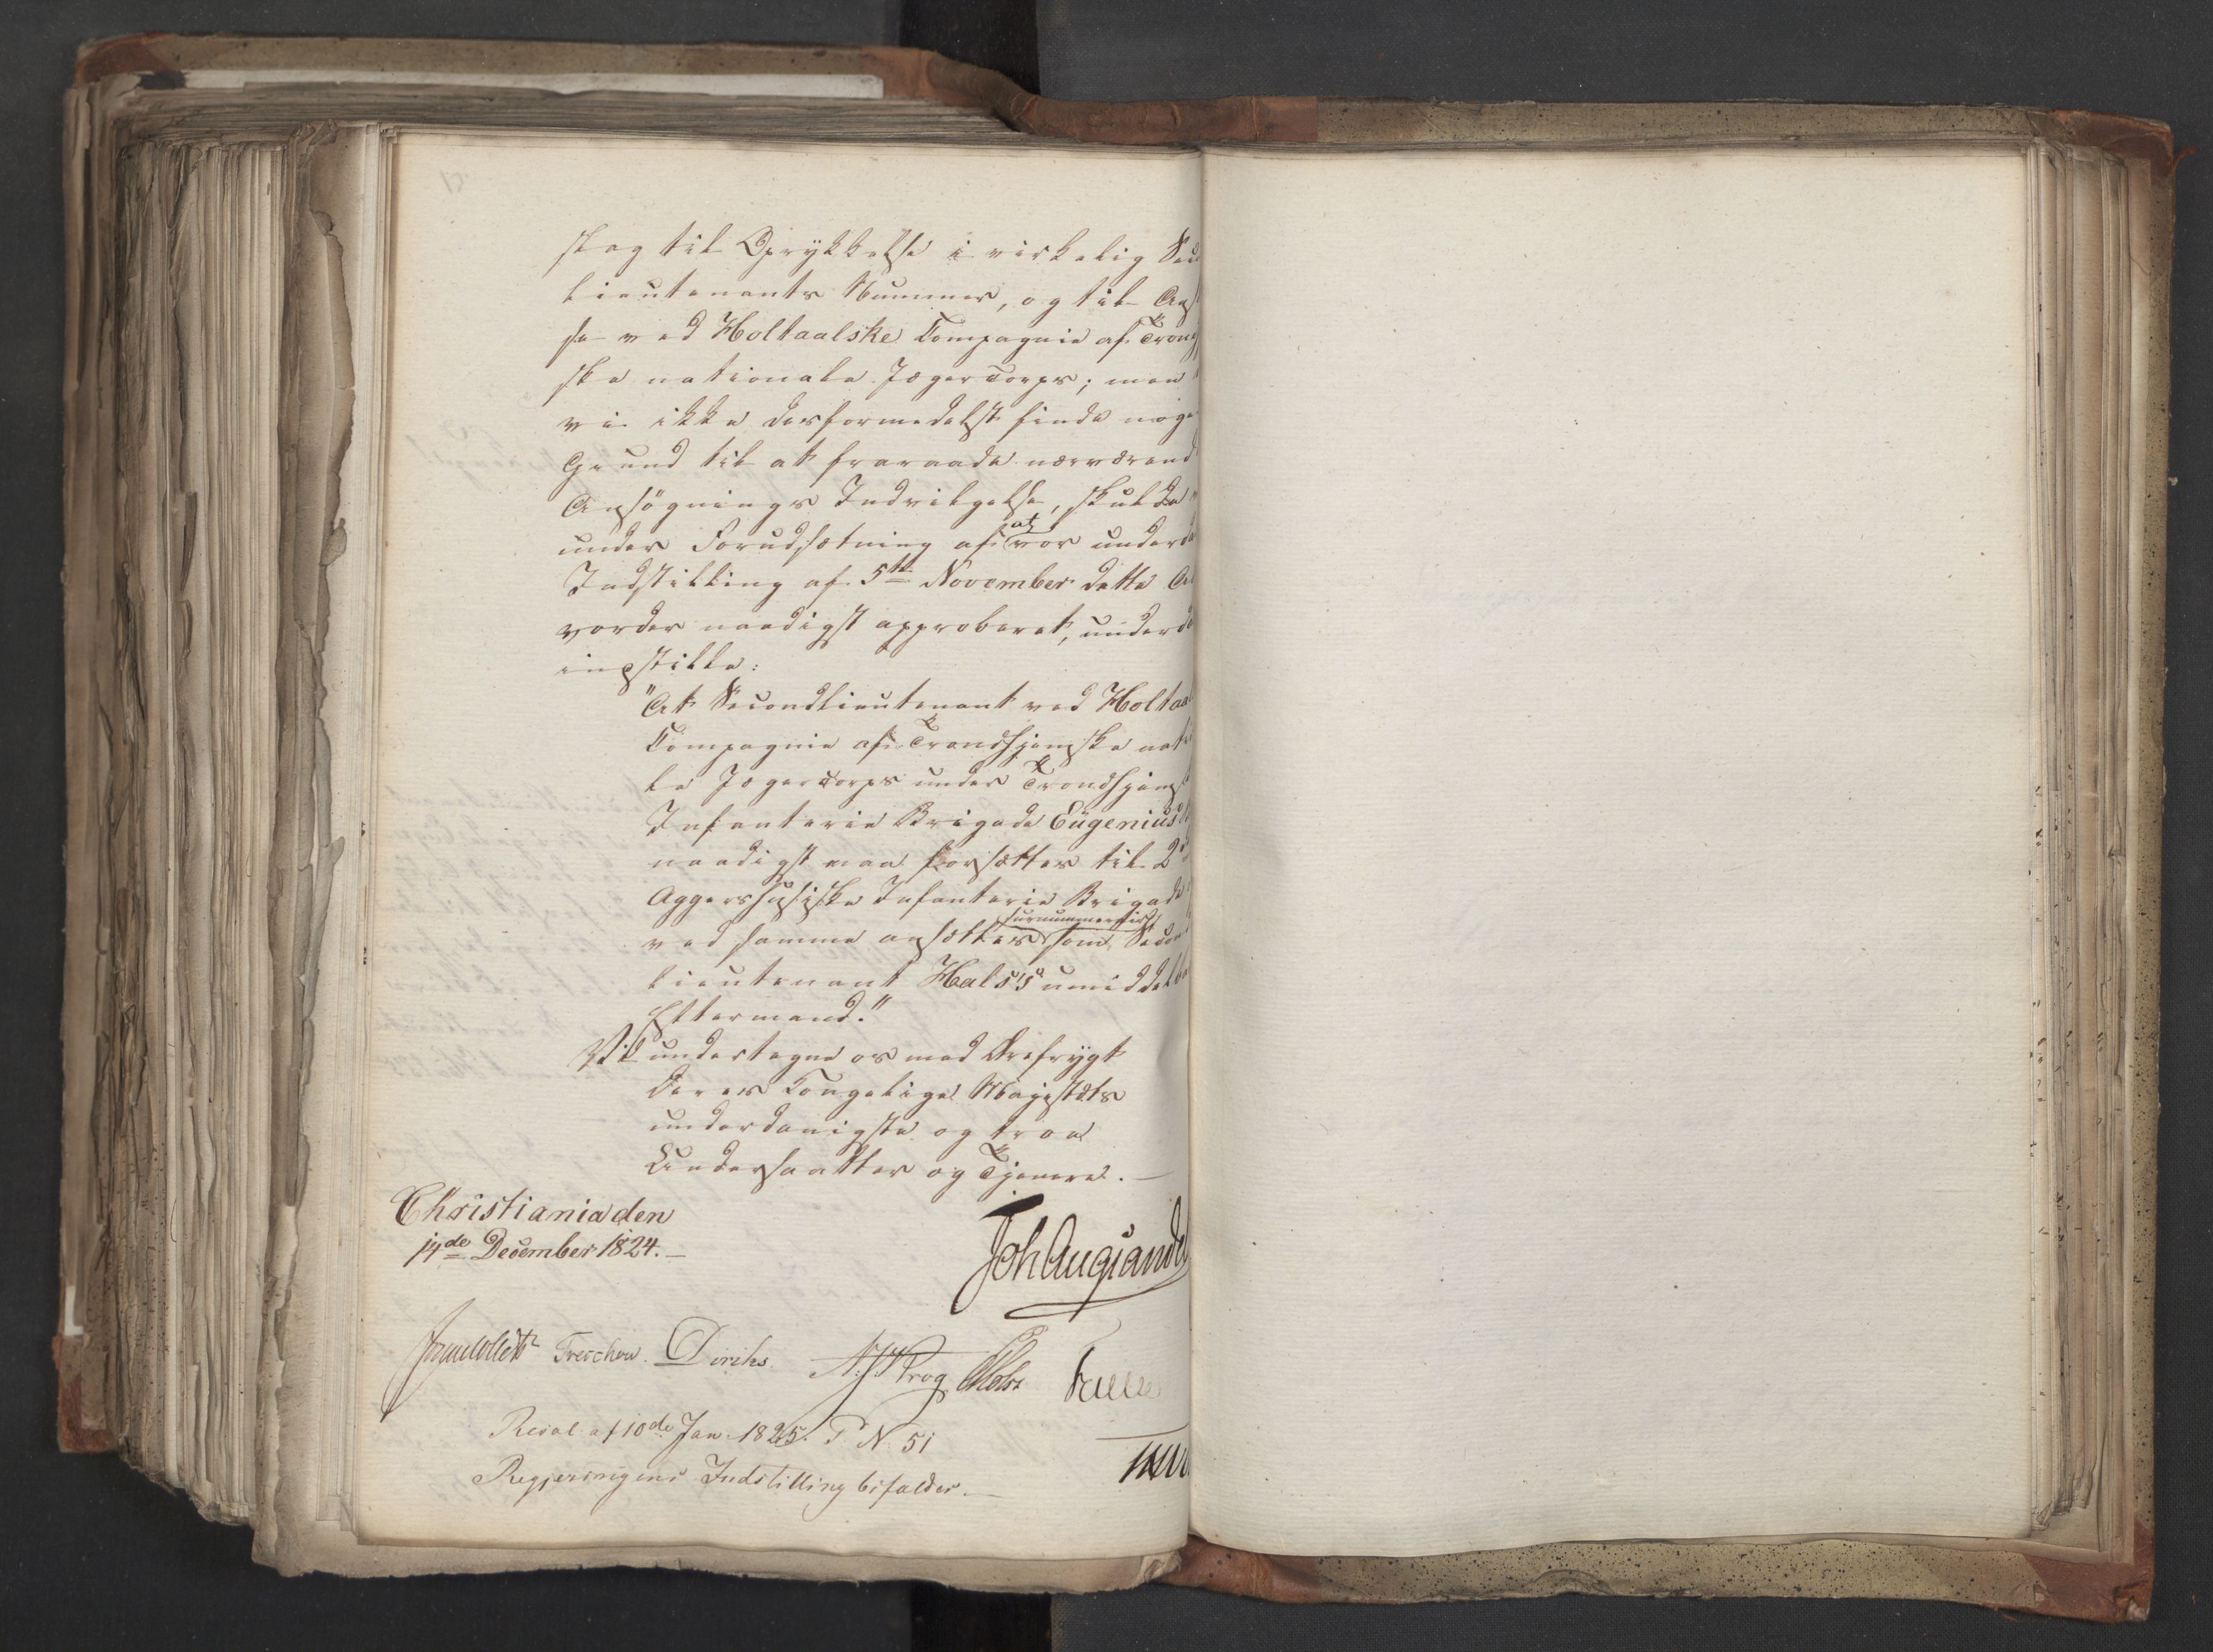 slag til Oprykkelse i virkelig Sec
lieutenants Nummer, og til An
se ved Holtaalske Compagnie af Tron
ske nationale Jægercorps; men
vi ikke desformedelst finde noge
Grund til at fraraade nærværend
Ansøgnings Indvilgelse, skulde
under Forudsætning af at vor under
Indstilling af 5te November dette
vorder naadigst approberet, underd
indstille:
"At Secondlieutenant ved Holtaa
Compagnie af Trondhjemske nati
le Jægercorps under Trondhjems
Infanterie Brigade Eugenius
naadigst maa forsættes til 2
Aggershusiske Infanterie Brigade
ved samme ansættes surnummerair som Secon
lieutenant Hals's umiddelba
Eftermand."
Vi undertegne os med Ærefrygt
Deres Kongelige Majestæts
underdanigste og troe
Undersaatter og Tjenere.—
Christiania den
14de December 1824.—
Joh Aug Sande
Jonas Collett Treschow. Diriks. Krog Holst
Resol. af 10de Jan. 1825. P. N. 51
Regjeringens Indstilling bifaldes.—